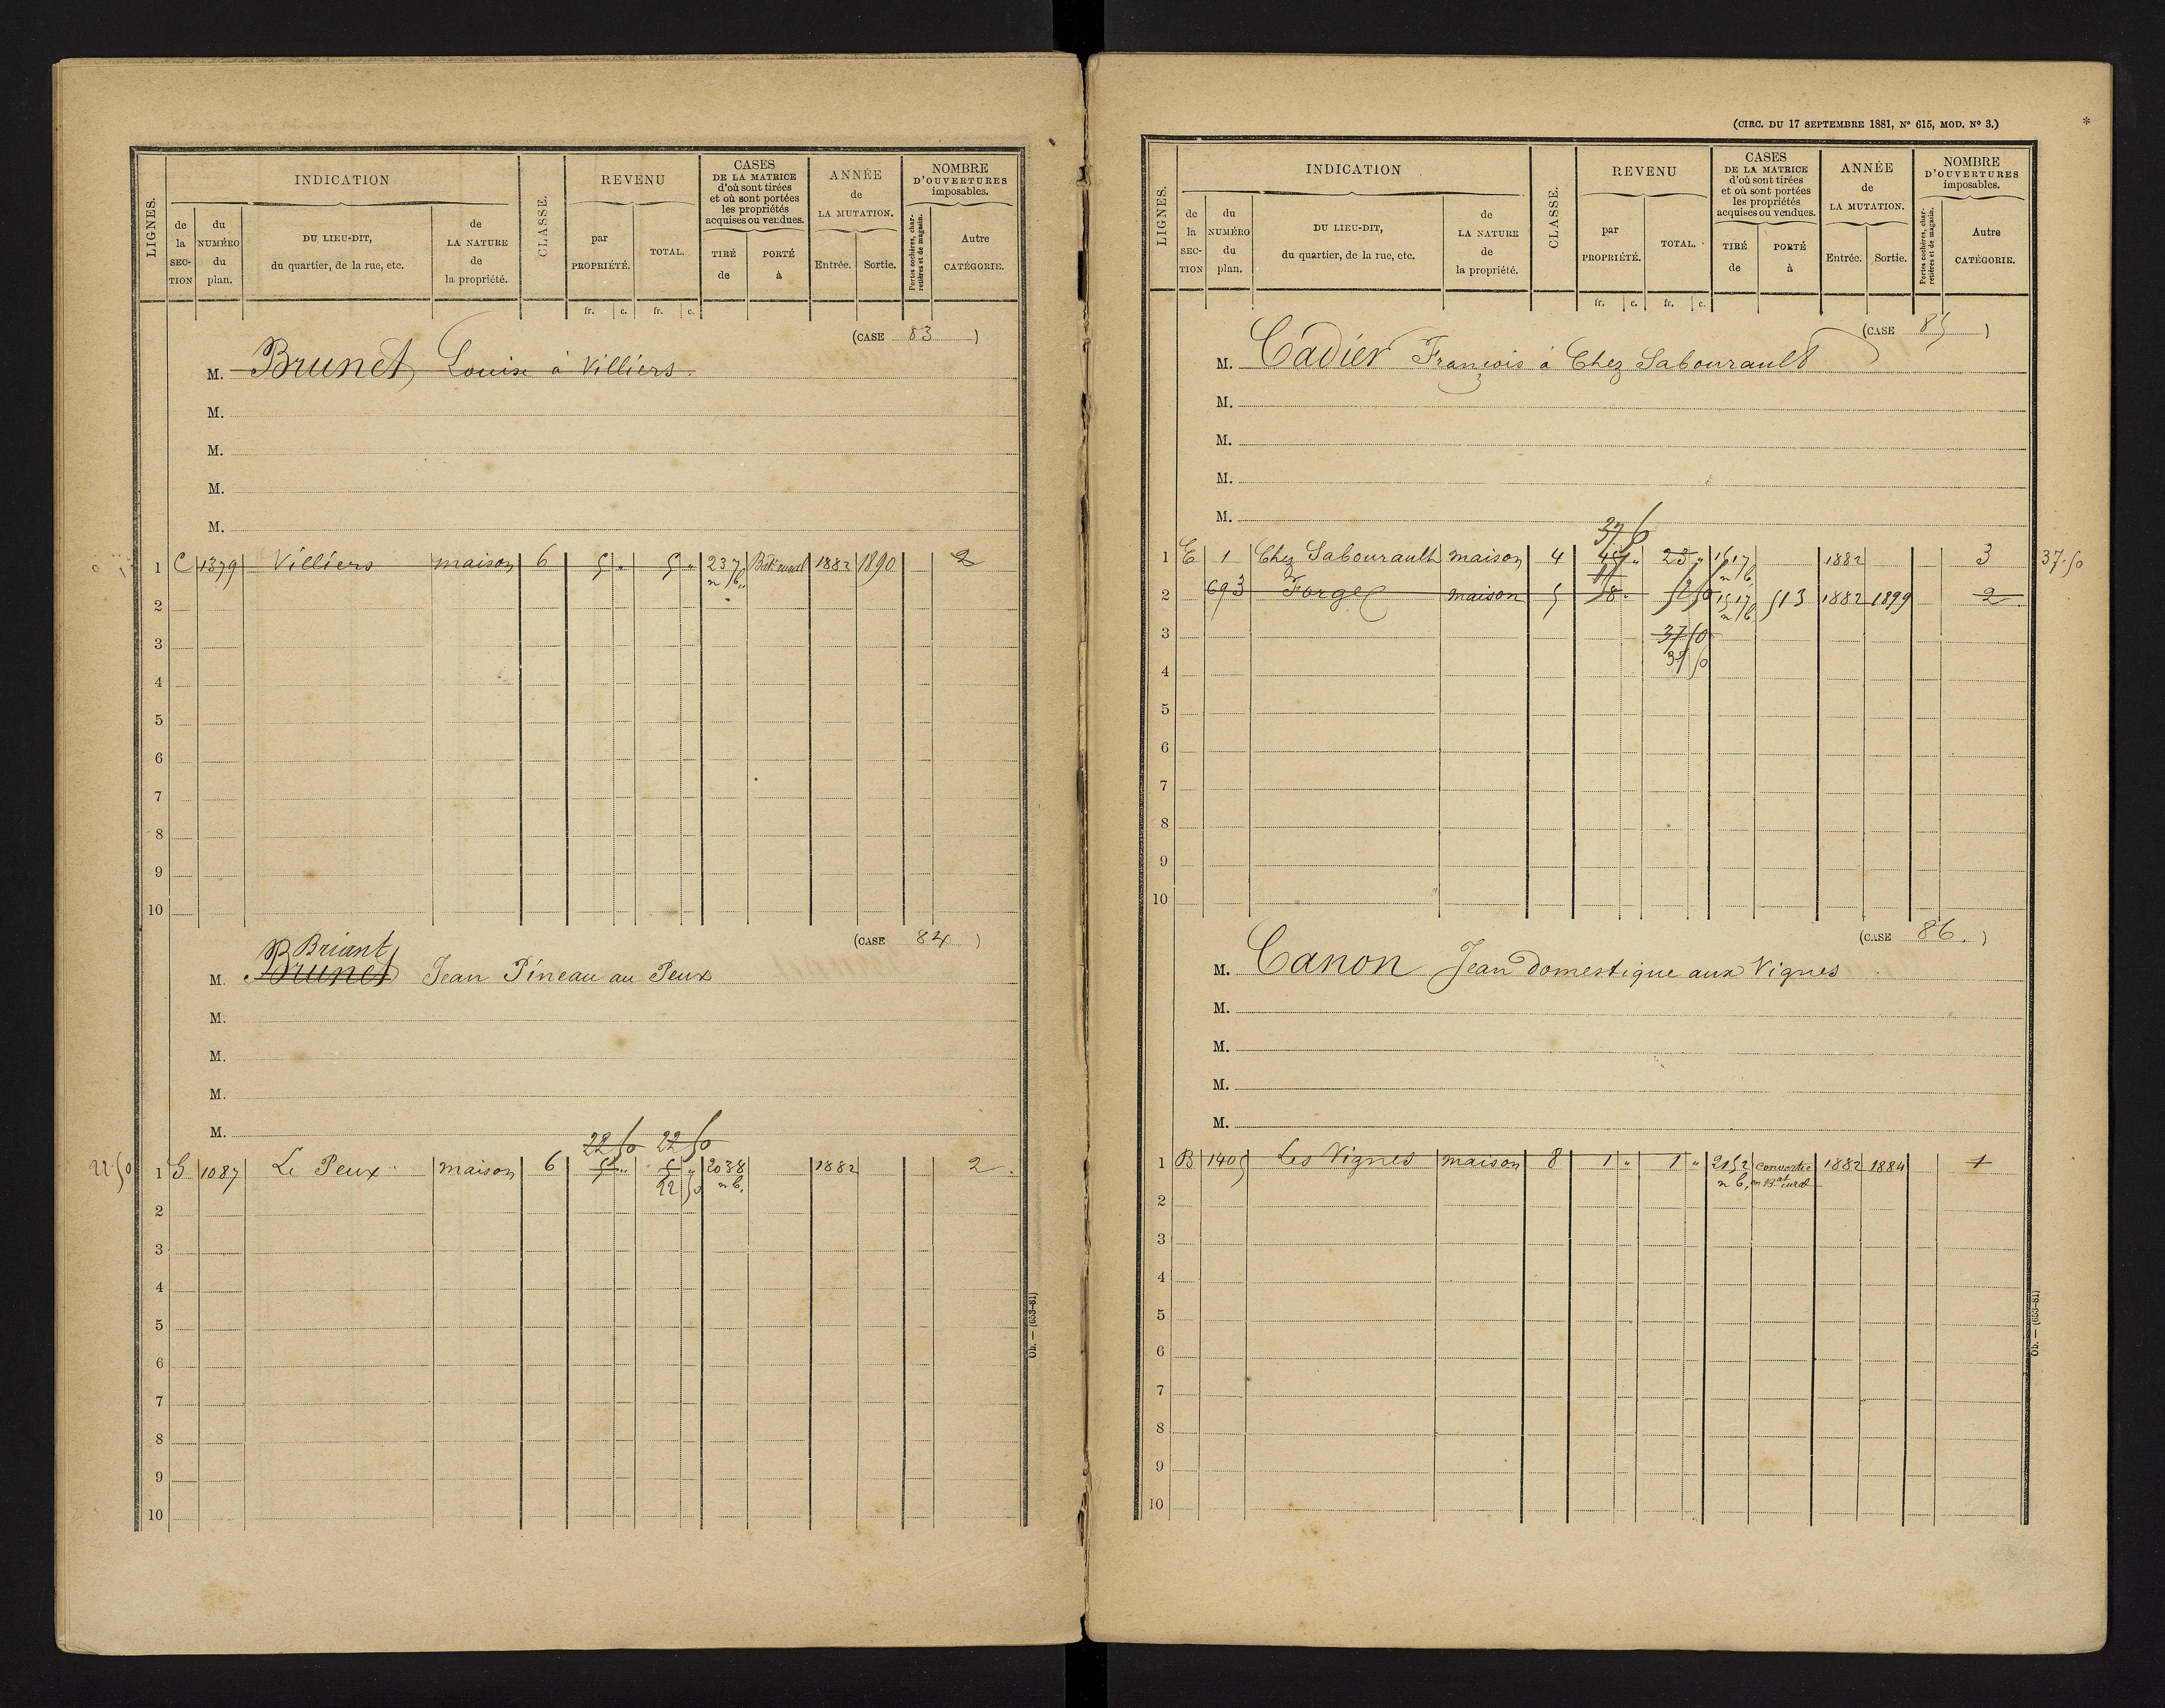 LIGNES.
INDICATION
de la SECTION
du NUMÉRO du plan.
DU LIEU-DIT, du quartier, de la rue, etc.
de LA NATURE de la propriété.
CLASSE.
REVENU
par PROPRIÉTÉ.
TOTAL.
fr. c. fr. c.
CASES DE LA MATRICE d'où sont tirées et où sont portées les propriétés acquises ou vendues.
TIRÉ de
PORTÉ à
ANNÉE de LA MUTATION.
Entrée. Sortie.
NOMBRE D'OUVERTURES imposables.
Portes cochères, charretières et de magasin.
Autre CATÉGORIE.
(CASE 83 )
M. Brunet Louise à Villiers.
M.
M.
M.
M.
1 C 1379 Villiers maison 6 5 " 5 " 237 Bât rural 1882 1890 2
n b.
2
3
4
5
6
7
8
9
10
(CASE 84 )
Briant
M. Brunet Jean Pineau au Peux
M.
M.
M.
M.
22 50 22 50
22.50 1 G 1087 Le Peux maison 6 5 " 5 " 2038 1882 2
22 50 n b.
2
3
4
5
6
7
8
9
10
Ob. — (653-81)
(CIRC. DU 17 SEPTEMBRE 1881, N° 615, MOD. N° 3.)
*
LIGNES.
INDICATION
de la SECTION
du NUMÉRO du plan.
DU LIEU-DIT, du quartier, de la rue, etc.
de LA NATURE de la propriété.
CLASSE.
REVENU
par PROPRIÉTÉ.
TOTAL.
fr. c. fr. c.
CASES DE LA MATRICE d'où sont tirées et où sont portées les propriétés acquises ou vendues.
TIRÉ de
PORTÉ à
ANNÉE de LA MUTATION.
Entrée. Sortie.
NOMBRE D'OUVERTURES imposables.
Portes cochères, charretières et de magasin.
Autre CATÉGORIE.
(CASE 85 )
M. Cadier François à Chez Sabourault
M.
M.
M.
M.
1 E 1 Chez Sabourault maison 4 23 " 1517 1882 3 37.50
n b.
2 693 Forge maison 5 8 " 1517 513 1882 1899 2
n b.
3 37 50
4 37 50
5
6
7
8
9
10
(CASE 86. )
M. Canon Jean domestique aux Vignes
M.
M.
M.
M.
1 B 1405 Les Vignes maison 8 1 " 1 " 2152 convertie 1882 1884 1
n b. en Bat rural
2
3
4
5
6
7
8
9
10
Ob. — (653-81)